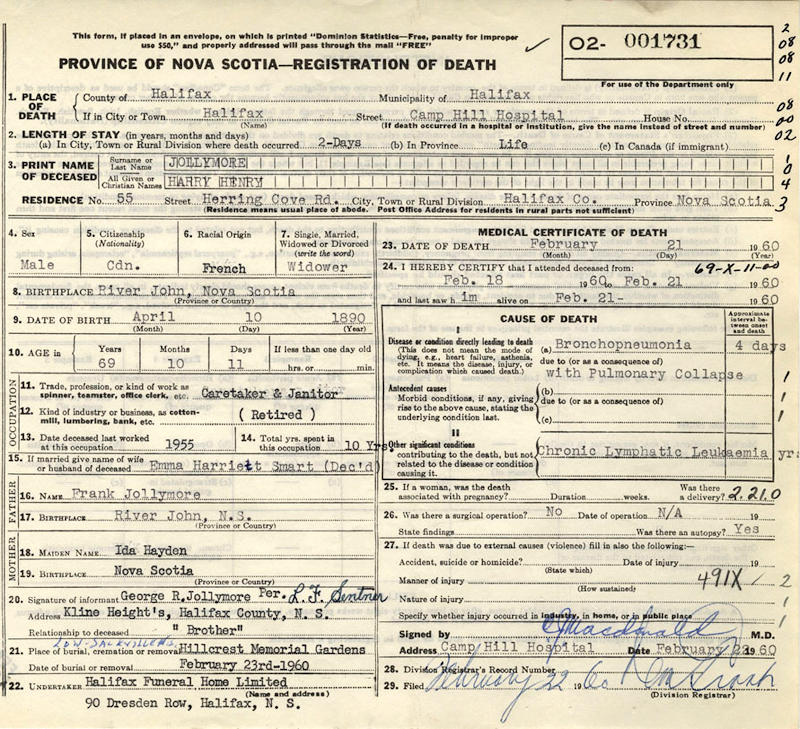 This form, if placed in an envelope, on which is printed "Dominion Statistics—Free, penalty for improper
use $50," and properly addressed will pass through the mail "FREE"
02- 001731
2
08
08
11
For use of the Department only
PROVINCE OF NOVA SCOTIA—REGISTRATION OF DEATH
1. PLACE OF DEATH
County of Halifax Municipality of Halifax
08
If in City or Town Halifax Street Camp Hill Hospital House No.
00
(Name) (If death occurred in a hospital or institution, give the name instead of street and number)
02
2. LENGTH OF STAY (in years, months and days)
(a) In City, Town or Rural Division where death occurred 2-Days (b) In Province Life (c) In Canada (if immigrant)
3. PRINT NAME OF DECEASED
Surname or Last Name JOLLYMORE
1
0
All Given or Christian Names HARRY HENRY
4
RESIDENCE No. 55 Street Herring Cove Rd. City, Town or Rural Division Halifax Co. Province Nova Scotia
3
(Residence means usual place of abode. Post Office Address for residents in rural parts not sufficient)
4. Sex
Male
5. Citizenship (Nationality)
Cdn.
6. Racial Origin
French
7. Single, Married, Widowed or Divorced (write the word)
Widower
8. BIRTHPLACE River John, Nova Scotia
(Province or Country)
9. DATE OF BIRTH April 10 1890
(Month) (Day) (Year)
10. AGE in
Years Months Days If less than one day old
69 10 11 hrs. or min.
OCCUPATION
11. Trade, profession, or kind of work as spinner, teamster, office clerk, etc. Caretaker & Janitor
12. Kind of industry or business, as cotton-mill, lumbering, bank, etc. (Retired)
13. Date deceased last worked at this occupation 1955
14. Total yrs. spent in this occupation 10 Yrs
15. If married give name of wife or husband of deceased Emma Harriett Smart (Dec'd)
FATHER
16. NAME Frank Jollymore
17. BIRTHPLACE River John, N.S.
(Province or Country)
MOTHER
18. MAIDEN NAME Ida Hayden
19. BIRTHPLACE Nova Scotia
(Province or Country)
20. Signature of informant George R.Jollymore Per. L.F. Sentner
Address Kline Height's, Halifax County, N. S.
Relationship to deceased "Brother"
LOW. SACKVILLE N.S.
21. Place of burial, cremation or removal Hillcrest Memorial Gardens
Date of burial or removal February 23rd-1960
22. UNDERTAKER Halifax Funeral Home Limited
(Name and address)
90 Dresden Row, Halifax, N. S.
MEDICAL CERTIFICATE OF DEATH
23. DATE OF DEATH February 21 1960
(Month) (Day) (Year)
24. I HEREBY CERTIFY that I attended deceased from: 69-X-11-00
Feb. 18 1960 to Feb. 21 1960
and last saw him alive on Feb. 21- 1960
CAUSE OF DEATH
Approximate interval between onset and death
I
Disease or condition directly leading to death
(This does not mean the mode of dying, e.g., heart failure, asthenia, etc. It means the disease, injury, or complication which caused death.)
(a) Bronchopneumonia 4 days
due to (or as a consequence of)
with Pulmonary Collapse
1
Antecedent causes
Morbid conditions, if any, giving rise to the above cause, stating the underlying condition last.
(b)
due to (or as a consequence of)
1
(c)
II
Other significant conditions
contributing to the death, but not related to the disease or condition causing it.
Chronic Lymphatic Leukaemia yrs
25. If a woman, was the death associated with pregnancy? Duration weeks. Was there a delivery? 2.21.0
26. Was there a surgical operation? No Date of operation N/A 19
State findings Was there an autopsy? Yes
27. If death was due to external causes (violence) fill in also the following:—
Accident, suicide or homicide? Date of injury 19
(State which)
Manner of injury 491X 1 2
(How sustained)
Nature of injury
1
Specify whether injury occurred in industry, in home, or in public place
1
Signed by Macdonald M.D.
Address Camp Hill Hospital Date February 22 1960
28. Division Registrar's Record Number
29. Filed February 22 1960
(Division Registrar)